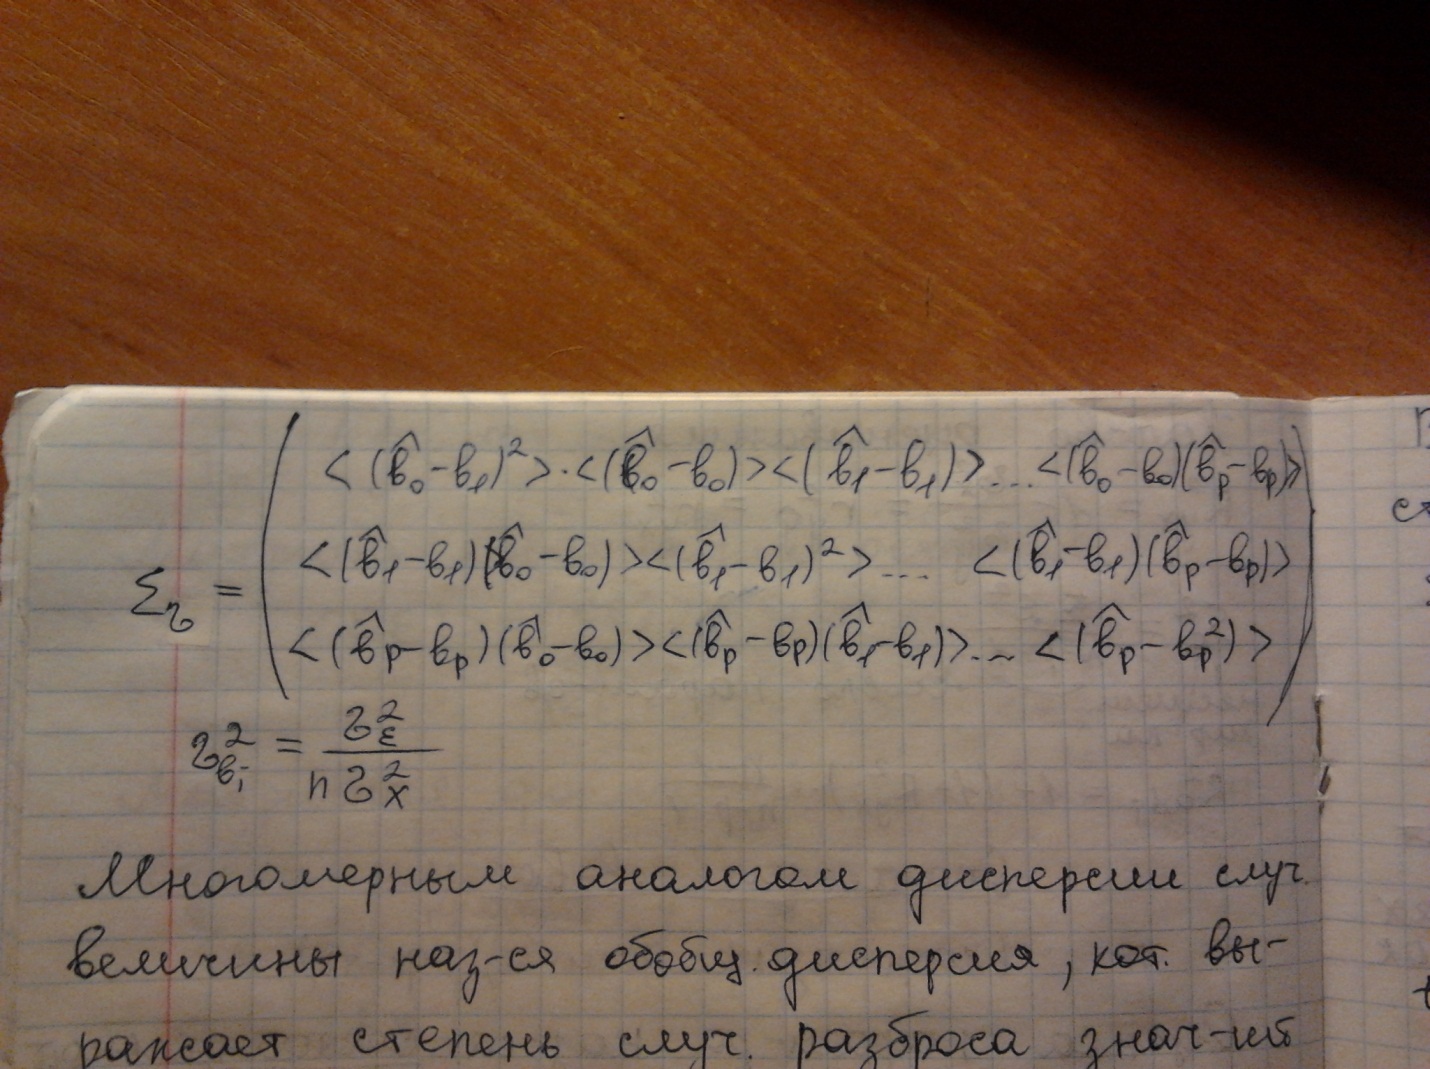 < (b̂₀ - b₁)² > · < (b̂₀ - b₀) > < (b̂₁ - b₁) > ... < (b̂₀ - b₀)(b̂ₚ - bₚ) >
Σ₂ = < (b̂₁ - b₁)(b̂₀ - b₀) > < (b̂₁ - b₁)² > ... < (b̂₁ - b₁)(b̂ₚ - bₚ) >
< (b̂ₚ - bₚ)(b̂₀ - b₀) > < (b̂ₚ - bₚ)(b̂₁ - b₁) > ... < (b̂ₚ - bₚ²) >
σ²_{bᵢ} = σ²_ε / n σ²_x
Многомерным аналогом дисперсии случ.
величины наз-ся обобщ. дисперсия, кот. вы-
ражает степень случ. разброса знач-ий